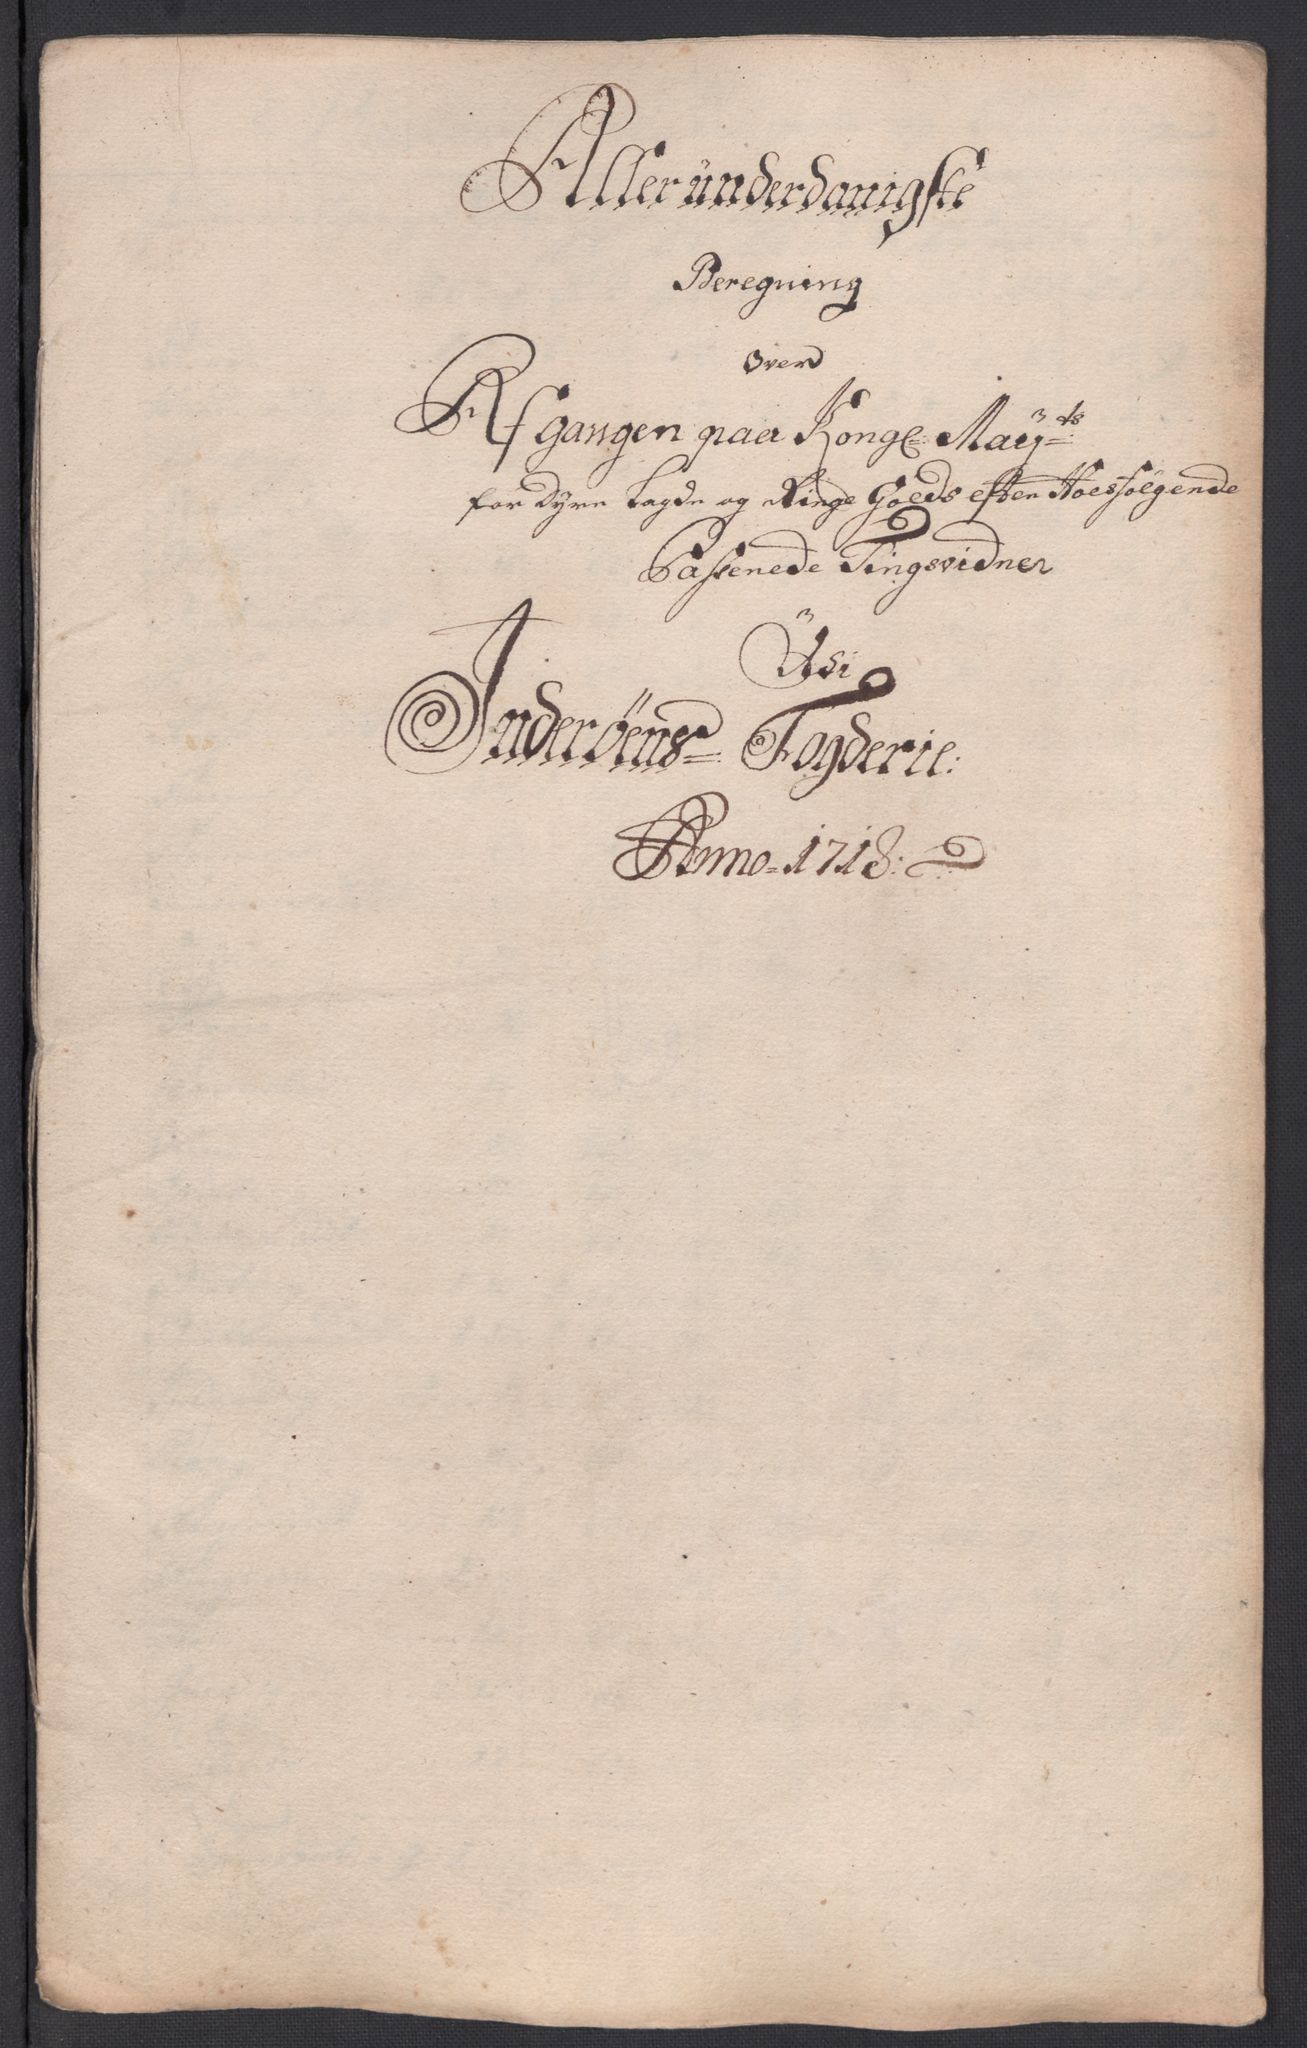 Alleründerdanigste
Beregning
over
Afgangen paa Kongl: Maÿ:ts
for dyre lagde og Ringe Goeds efter Hoesfölgende
Passerede Tingsvidner
Üdi
Inderöens Fogderie:
Anno 1718: